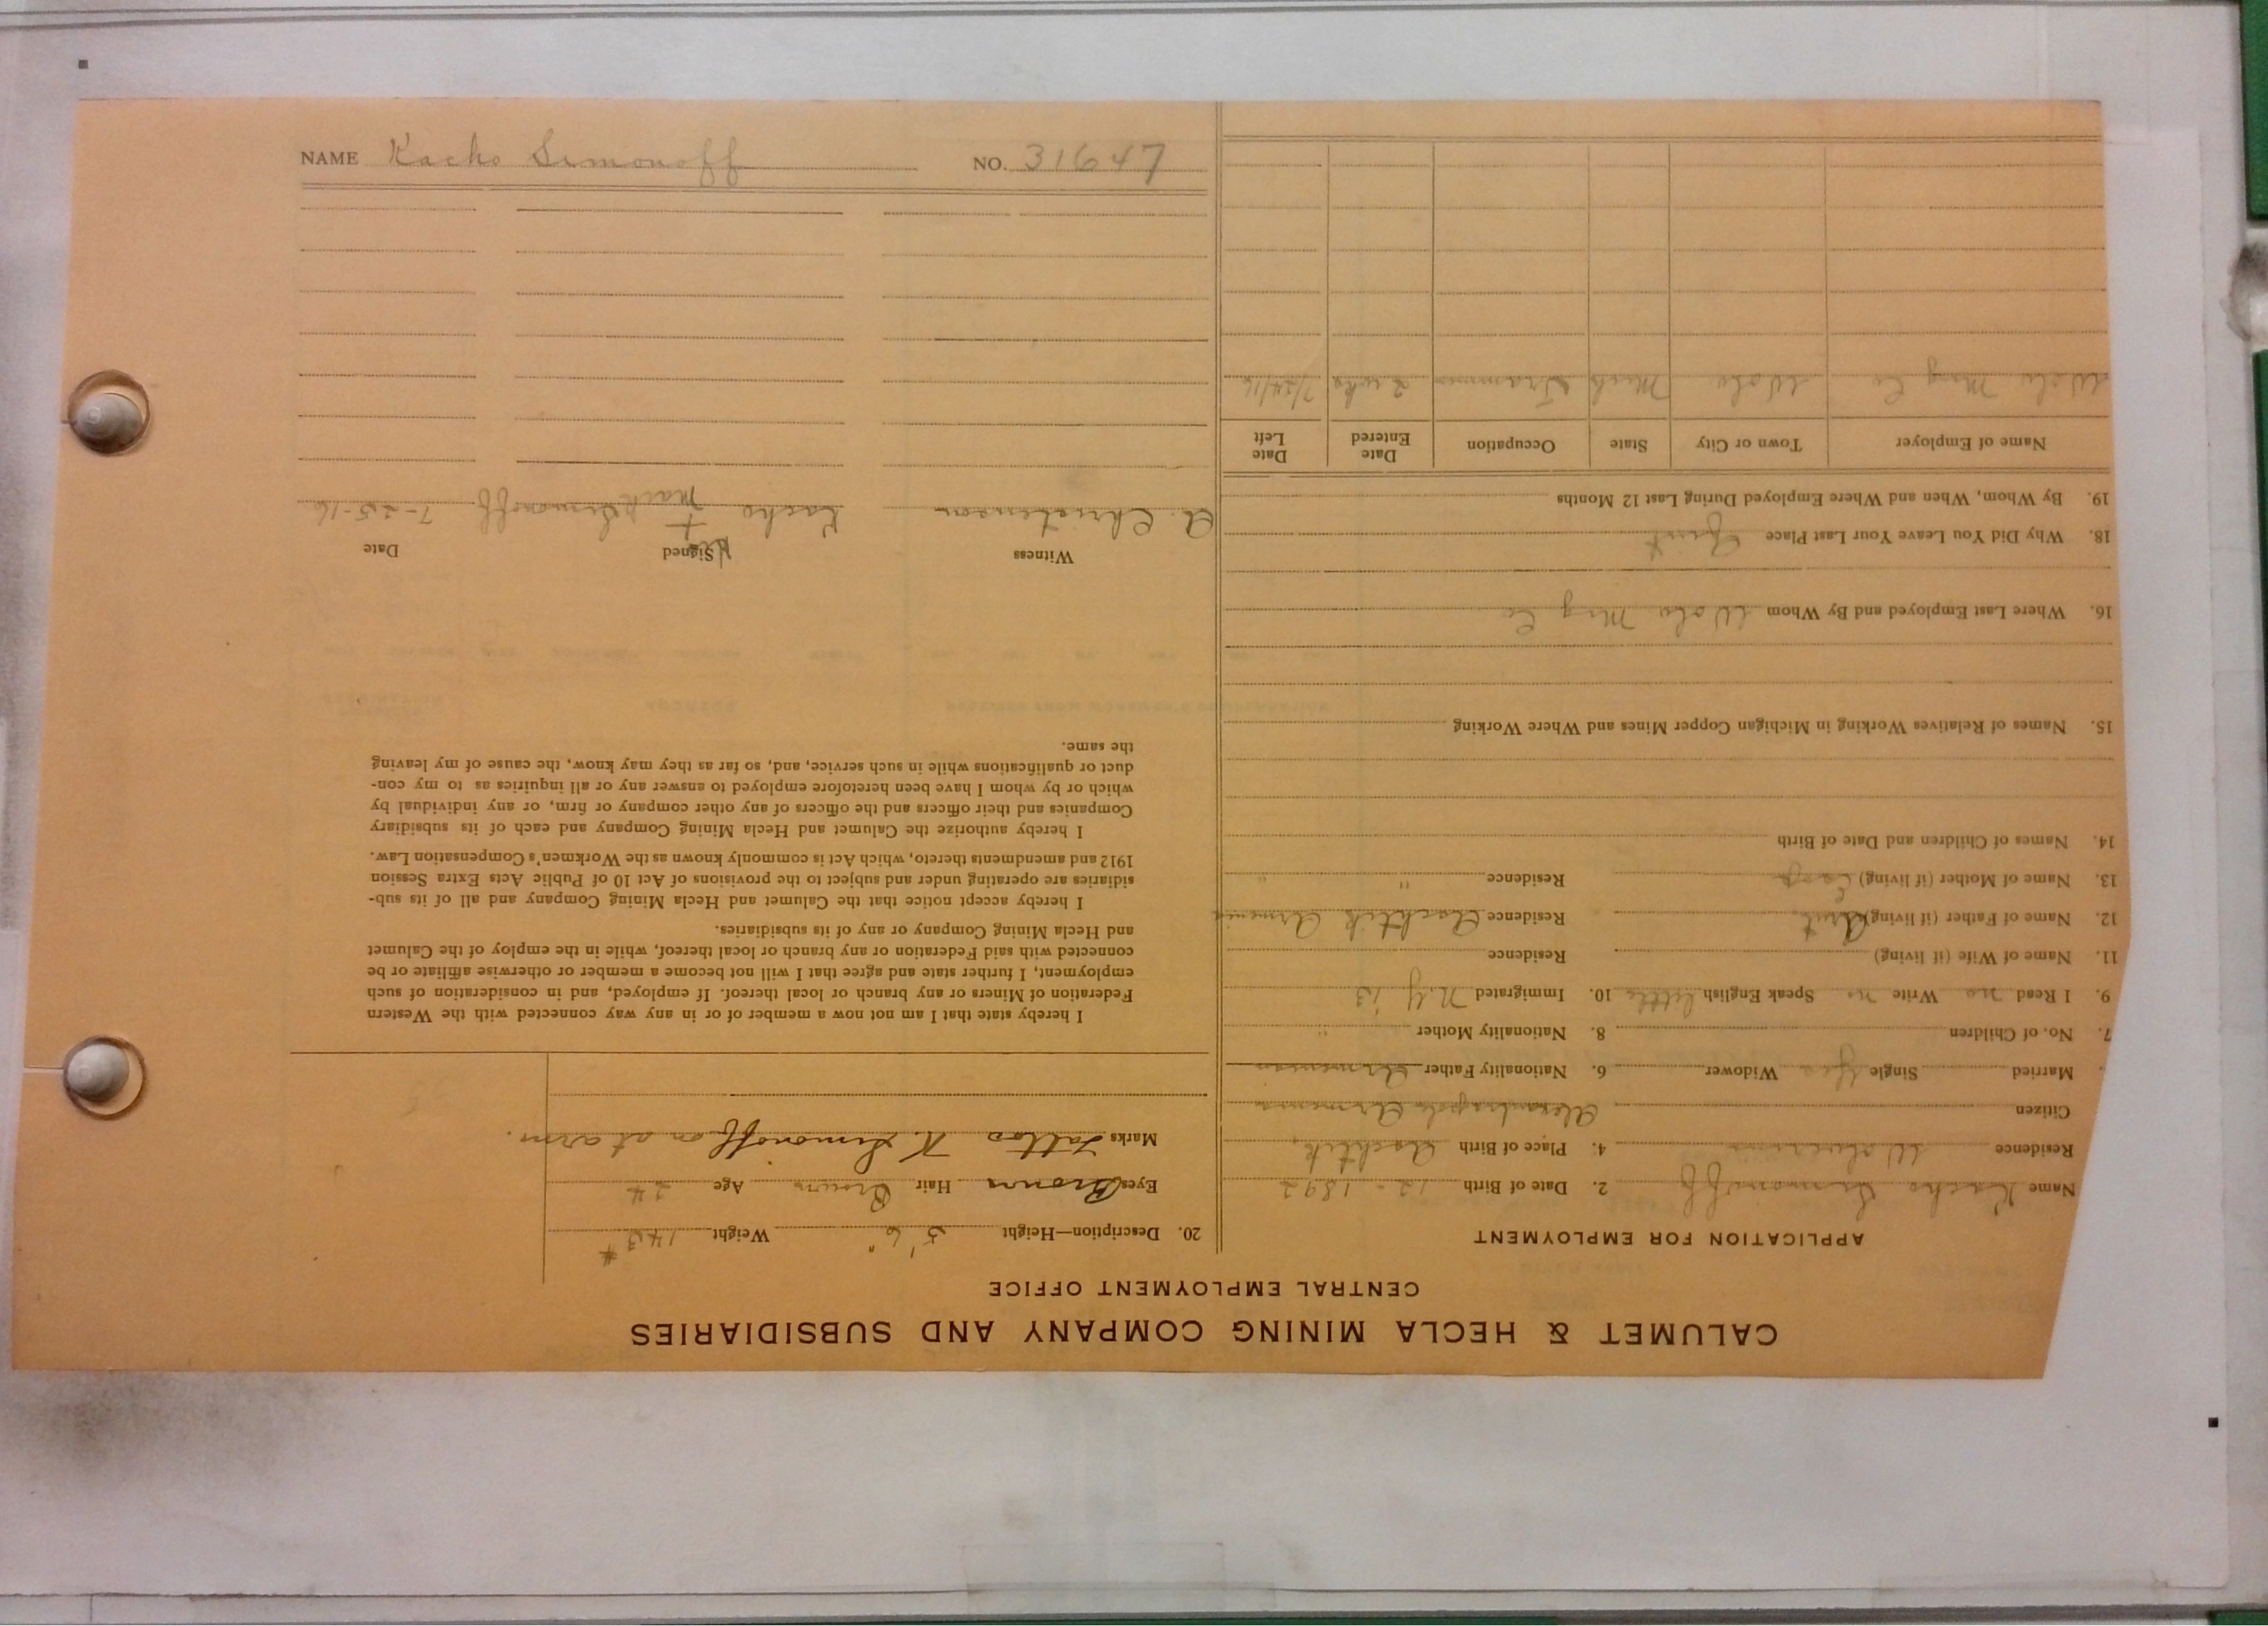 NAME Kacho Simonoff NO. 31647
CALUMET & HECLA MINING COMPANY AND SUBSIDIARIES
CENTRAL EMPLOYMENT OFFICE
APPLICATION FOR EMPLOYMENT
Name Kacho Simonoff 2. Date of Birth 12 - 1892
Residence Wolverine 4. Place of Birth
Citizen Armenia
Married Single Yes Widower 6. Nationality Father Armenian
7. No. of Children 8. Nationality Mother "
9. I Read no Write no Speak English little 10. Immigrated N.Y 13
11. Name of Wife (if living) Residence
12. Name of Father (if living) Residence Armenia
13. Name of Mother (if living) Residence " "
14. Names of Children and Date of Birth
15. Names of Relatives Working in Michigan Copper Mines and Where Working
16. Where Last Employed and By Whom Wolv Mng Co
18. Why Did You Leave Your Last Place Quit
19. By Whom, When and Where Employed During Last 12 Months
Name of Employer Town or City State Occupation Date Entered Date Left
Wolv Mng Co Wolv Mich Trammer 2 wks 7/24/16
20. Description—Height 5' 6" Weight 143 #
Eyes Brown Hair Brown Age 24
Marks Tattoo K. Simonoff on arm.
I hereby state that I am not now a member of or in any way connected with the Western
Federation of Miners or any branch or local thereof. If employed, and in consideration of such
employment, I further state and agree that I will not become a member or otherwise affiliate or be
connected with said Federation or any branch or local thereof, while in the employ of the Calumet
and Hecla Mining Company or any of its subsidiaries.
I hereby accept notice that the Calumet and Hecla Mining Company and all of its sub-
sidiaries are operating under and subject to the provisions of Act 10 of Public Acts Extra Session
1912 and amendments thereto, which Act is commonly known as the Workmen's Compensation Law.
I hereby authorize the Calumet and Hecla Mining Company and each of its subsidiary
Companies and their officers and the officers of any other company or firm, or any individual by
which or by whom I have been heretofore employed to answer any or all inquiries as to my con-
duct or qualifications while in such service, and, so far as they may know, the cause of my leaving
the same.
Witness Signed Date
his
A. Christenson Kacho + Simonoff 7-25-16
mark